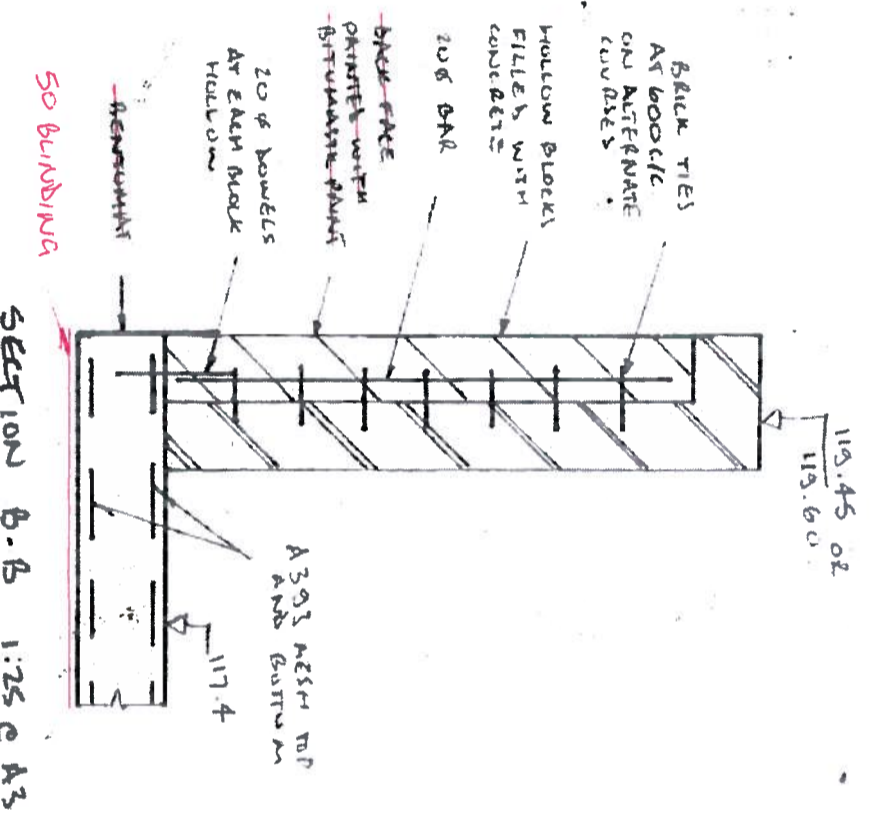 BRICK TIES
AT 600C/C
ON ALTERNATE
COURSES
HOLLOW BLOCKS
FILLED WITH
CONCRETE
20ø BAR
BACK FACE
PAINTED WITH
BITUMASTIC PAINT
20ø DOWELS
AT EACH BLOCK
HOLLOW
BENTOMAT
50 BLINDING
119.45 OR
119.60
117.4
A393 MESH TOP
AND BOTTOM
SECTION B-B 1:25 @ A3